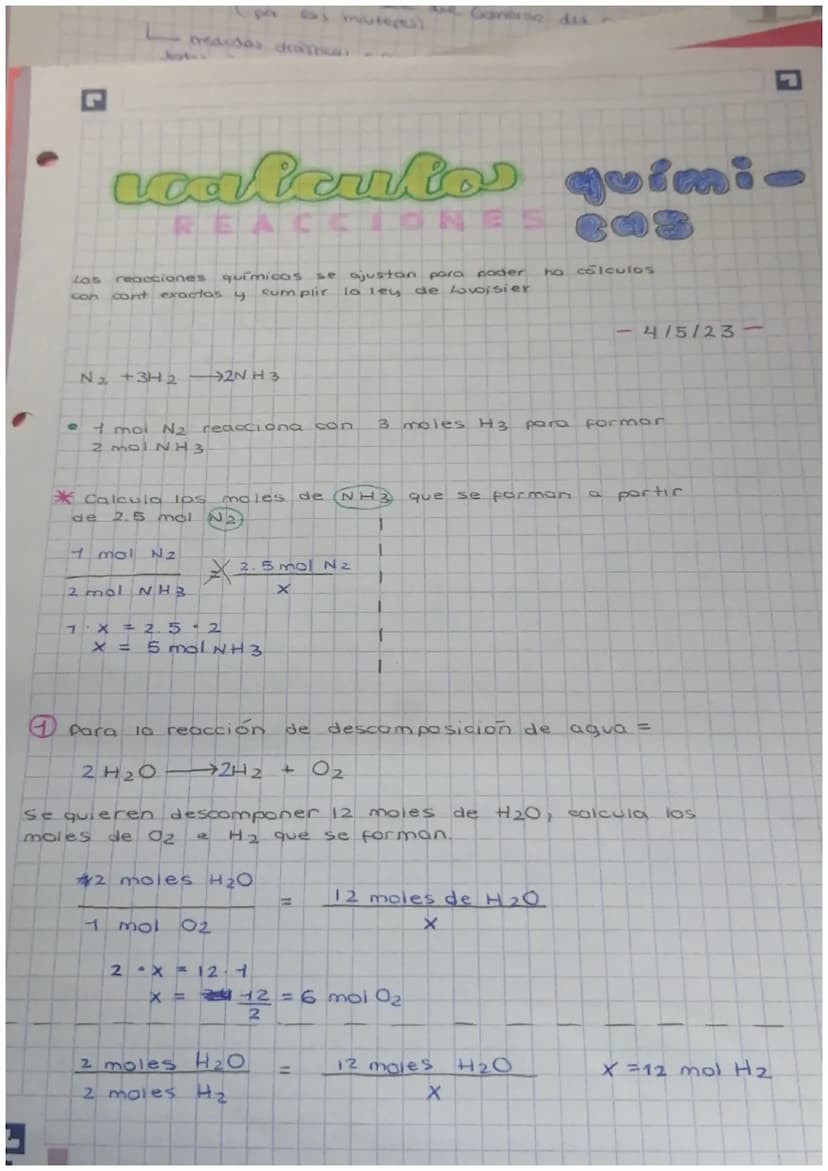 medidas
calculos quími-
REACCIONES cas
Las reacciones químicas se ajustan para poder ha cálculos
con cant exactas y cumplir la ley de Lavoisier
- 4/5/23 -
N2 + 3H2 → 2NH3
• 1 mol N2 reacciona con 3 moles H3 para formar
2 mol NH3
* Calcula los moles de NH3 que se forman a partir
de 2.5 mol N2
1 mol N2 / 2 mol NH3 = 2.5 mol N2 / x
1 · x = 2.5 · 2
x = 5 mol NH3
1 Para la reacción de descomposición de agua =
2 H2O → 2H2 + O2
Se quieren descomponer 12 moles de H2O, calcula los
moles de O2 e H2 que se forman.
2 moles H2O / 1 mol O2 = 12 moles de H2O / x
2 · x = 12 · 1
x = 12 / 2 = 6 mol O2
2 moles H2O / 2 moles H2 = 12 moles H2O / x x = 12 mol H2